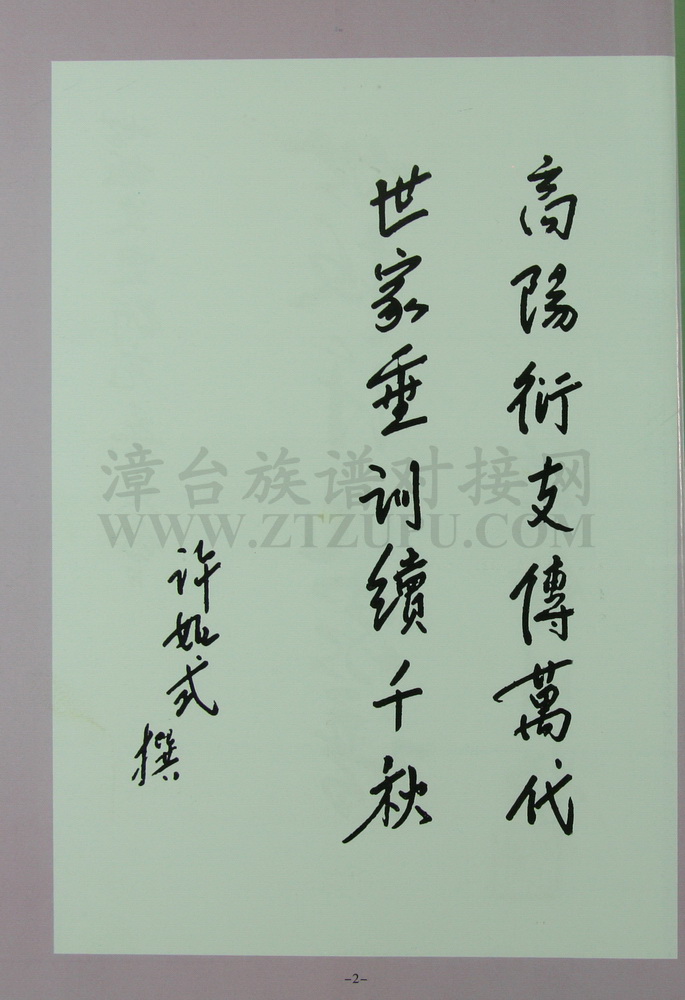 高陽衍支傳萬代
世家垂訓續千秋
许如式
撰
漳台族谱对接网
WWW.ZTZUPU.COM
-2-